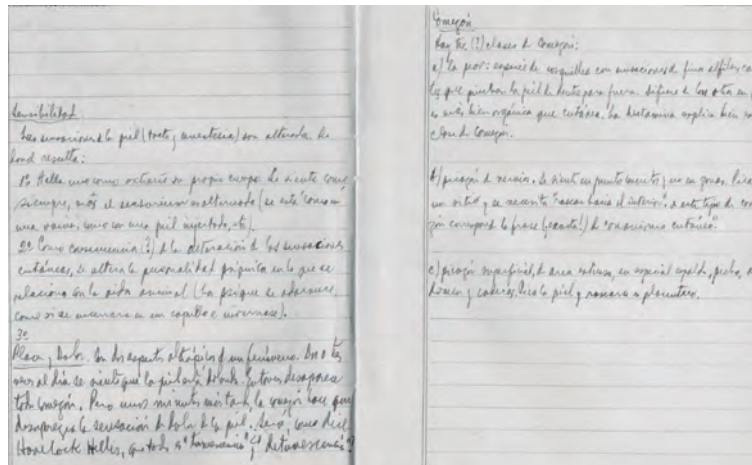 Sensibilidad
Las sensaciones de la piel (tacto y anestesia) son alteradas. De
dond resulta:
1º Halla uno como extraño su propio cuerpo. Se siente como
siempre, más el sensorium es alternado (se está "como en
una vaina", como con una piel injertada, etc).
2º Como consecuencia (?) de la alteración de las sensaciones
cutáneas, se altera la personalidad psíquica en lo que se
relaciona con la vida animal (La psique se adormece,
como si se encerrara en un capullo e invernase).
3º
Placer y Dolor. Son dos aspectos de un fenómeno. Dos o tres
veces al día se siente que la piel está. Entonces desaparece
toda comezón. Pero unos minutos más tarde la comezón hace que
desaparezca la sensación de dolor de la piel. Será, como dice
Havelock Hellis, que todo es "tumescencia" y detumescencia?
Comezón
Hay tre (?) clases de comezón:
a) La peor: especie de cosquilleo con sensaciones de finos alfileres
que pinchan la piel de dentro para fuera. Difiere de las otra en
es más bien orgánica que cutánea. La histamina explica bien
clase de comezón.
b) picazón de nervios. Se siente en puntos inciertos y no en zonas. Pica
un sitio y se necesita "rascar hacia el interior". A este tipo de
zón correspond la frase (¡exacta!) de "onanismo cutáneo".
c) picazón superficial, de area extensa, en especial espalda, pecho,
domen y caderas. Pica la piel y rascarse es placentero.